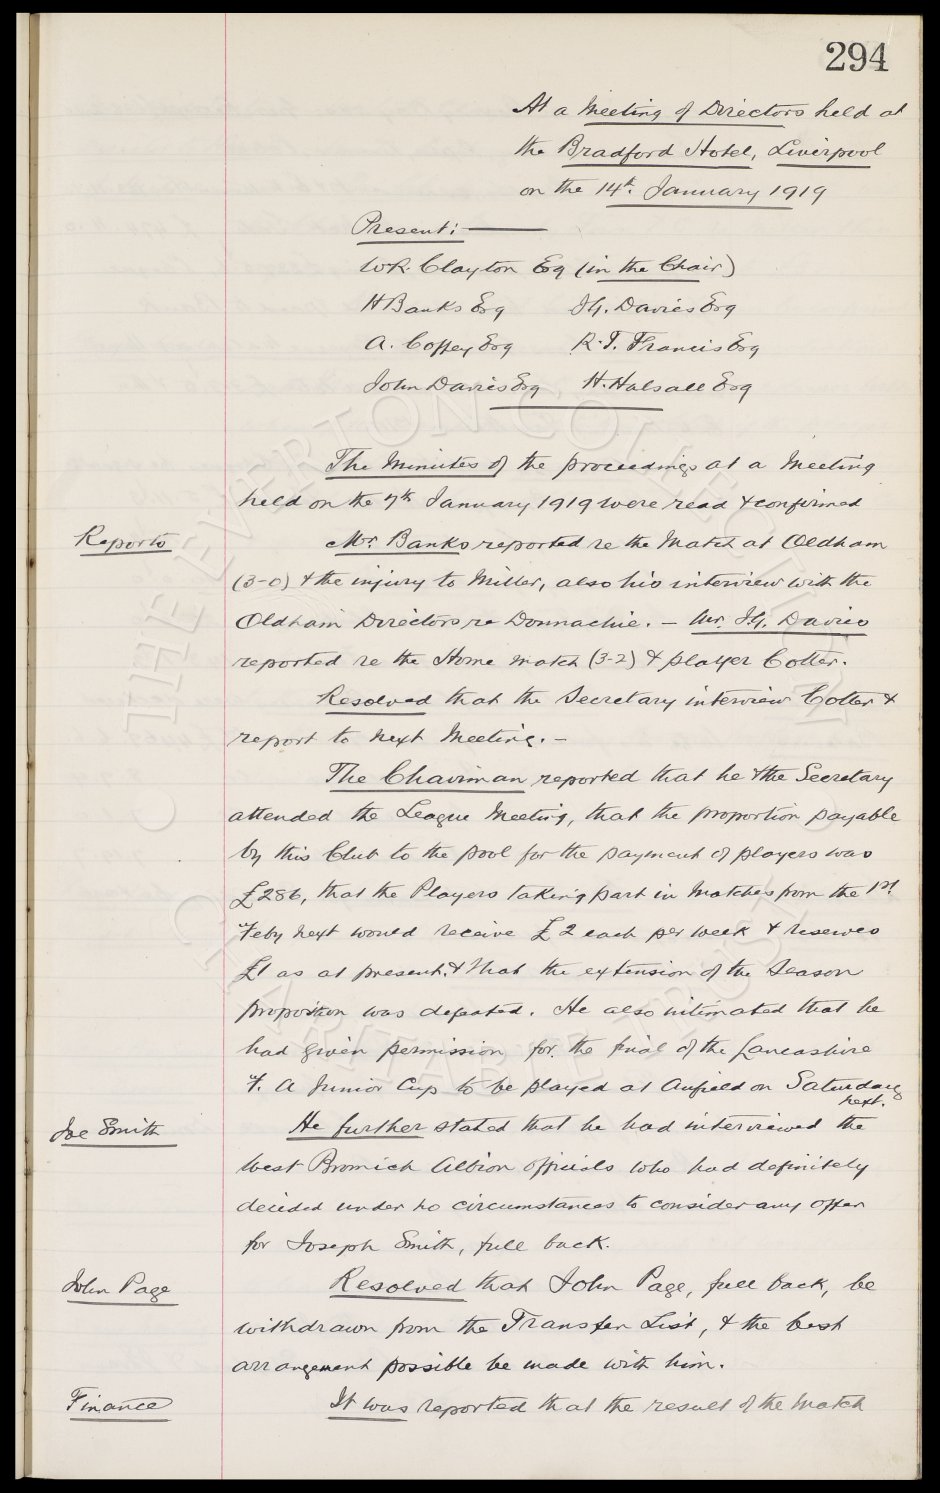 294
At a Meeting of Directors held at
the Bradford Hotel, Liverpool
on the 14th. January 1919
Present:—
W.R. Clayton Esq (in the Chair)
H Banks Esq J.G. Davies Esq
A. Coffey Esq R.T. Francis Esq
John Davies Esq H. Halsall Esq
The Minutes of the proceedings at a Meeting
held on the 7th January 1919 were read & confirmed
Reports
Mr. Banks reported re the Match at Oldham
(3-0) & the injury to Miller, also his interview with the
Oldham Directors re Donnachie. — Mr. J.G. Davies
reported re the Home match (3-2) & player Cotter.
Resolved that the Secretary interview Cotter &
report to next Meeting. —
The Chairman reported that he & the Secretary
attended the League Meeting, that the proportion payable
by this Club to the pool for the payment of players was
£286, that the Players taking part in Matches from the 1st
Feby next would receive £2 each per week & reserves
£1 as at present, & that the extension of the Season
proposition was defeated. He also intimated that he
had given permission for the final of the Lancashire
F. A Junior Cup to be played at Anfield on Saturday
next.
Joe Smith
He further stated that he had interviewed the
West Bromich Albion officials who had definitely
decided under no circumstances to consider any offer
for Joseph Smith, full back.
John Page
Resolved that John Page, full back, be
withdrawn from the Transfer List, & the best
arrangement possible be made with him.
Finance
It was reported that the result of the Match
THE EVERTON COLLECTION
CHARITABLE TRUST